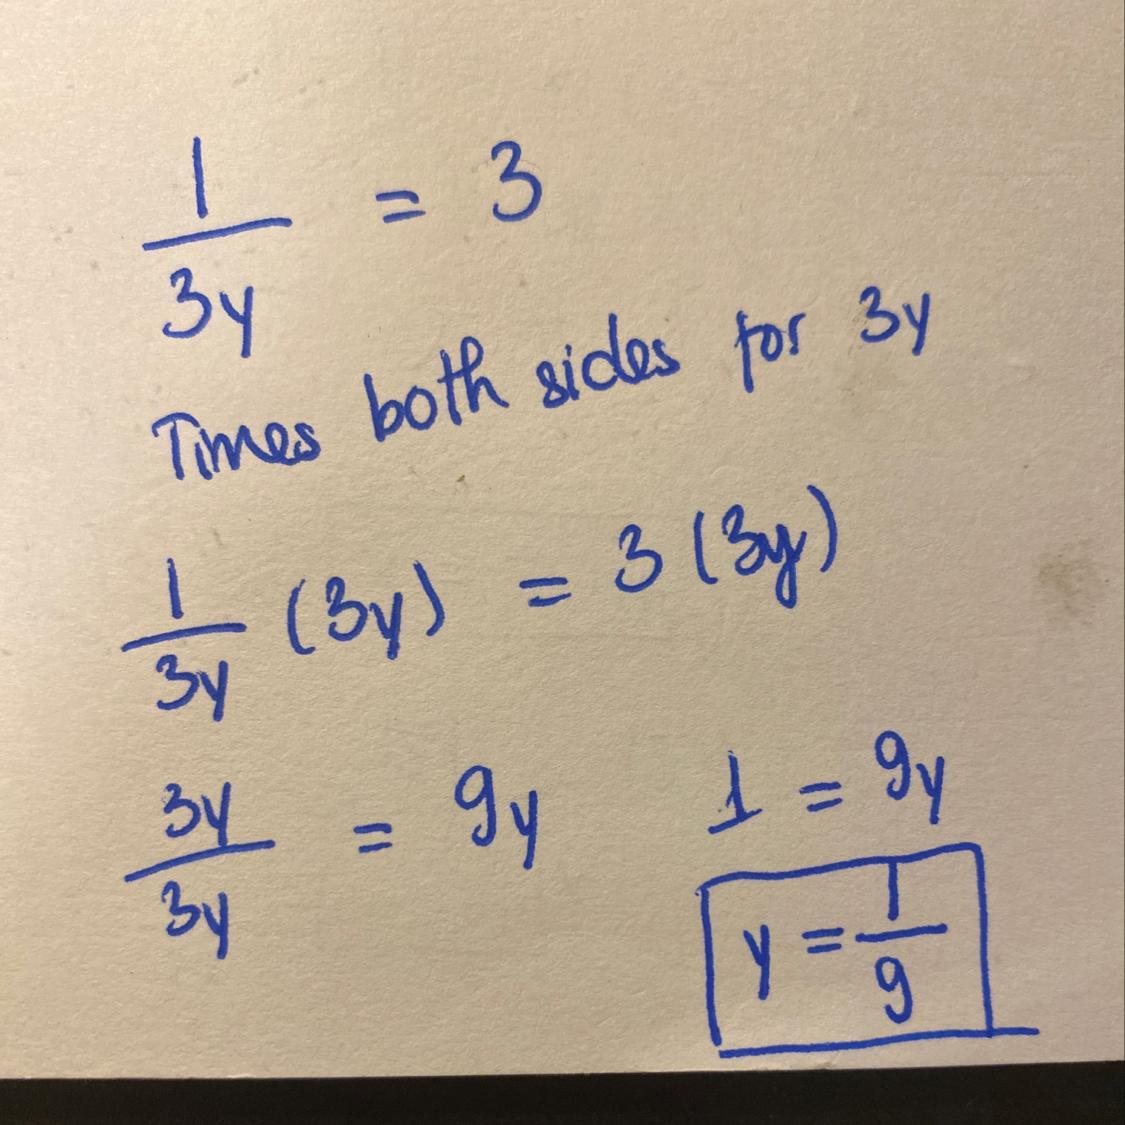 1/3y = 3
Times both sides for 3y
1/3y (3y) = 3 (3y)
3y/3y = 9y
1 = 9y
y = 1/9